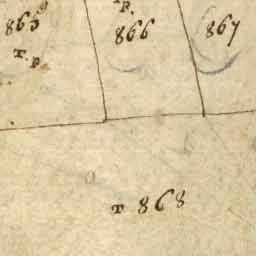 865
T. P.
P.
866
867
T 868